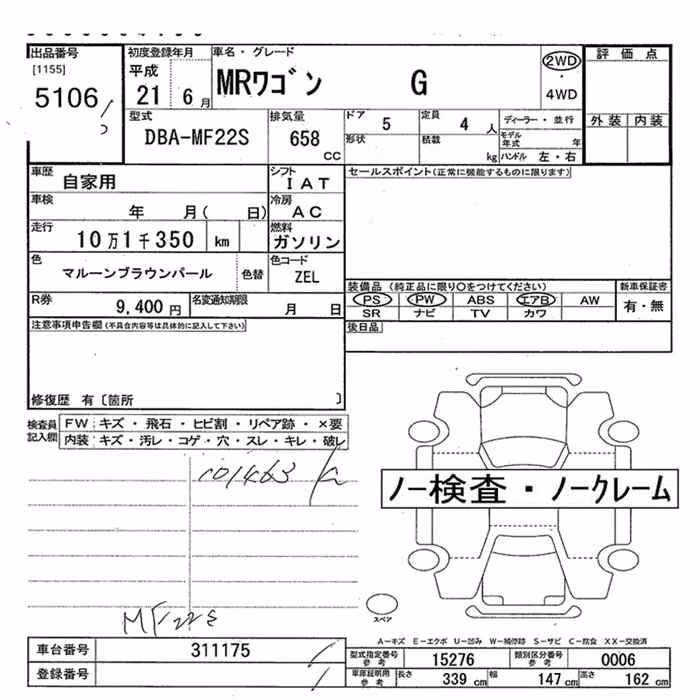 出品番号 初度登録年月 車名・グレード 評価点
[1155] 平成 2WD
5106 21 6月 MRワゴン G ・
4WD
型式 排気量 ドア 定員 ディーラー・並行 外装 内装
DBA-MF22S 658 CC 5 4 人
形状 積載 kg モデル年式 年
ハンドル 左・右
車歴 自家用 シフト IAT セールスポイント(正常に機能するものに限ります)
車検 年 月( 日) 冷房 AC
走行 10万1千350 km 燃料 ガソリン
色 マルーンブラウンパール 色替 色コード ZEL
装備品(純正品に限り○をつけてください) 新車保証書
R券 9,400円 名変通知期限 月 日 PS PW ABS エアB AW 有・無
SR ナビ TV カワ
注意事項申告欄(不具合内容等は具体的に記入して下さい) 後日品
修復歴 有〔箇所 〕
検査員記入欄 FW キズ・飛石・ヒビ割・リペア跡・×要
内装 キズ・汚レ・コゲ・穴・スレ・キレ・破レ
101463
ノー検査・ノークレーム
スペア
MF22S
A-キズ E-エクボ U-凹み W-補修跡 S-サビ C-腐食 XX-交換済
車台番号 311175 型式指定番号 参考 15276 類別区分番号 参考 0006
登録番号 車庫証明用 参考 長さ 339 cm 幅 147 cm 高さ 162 cm